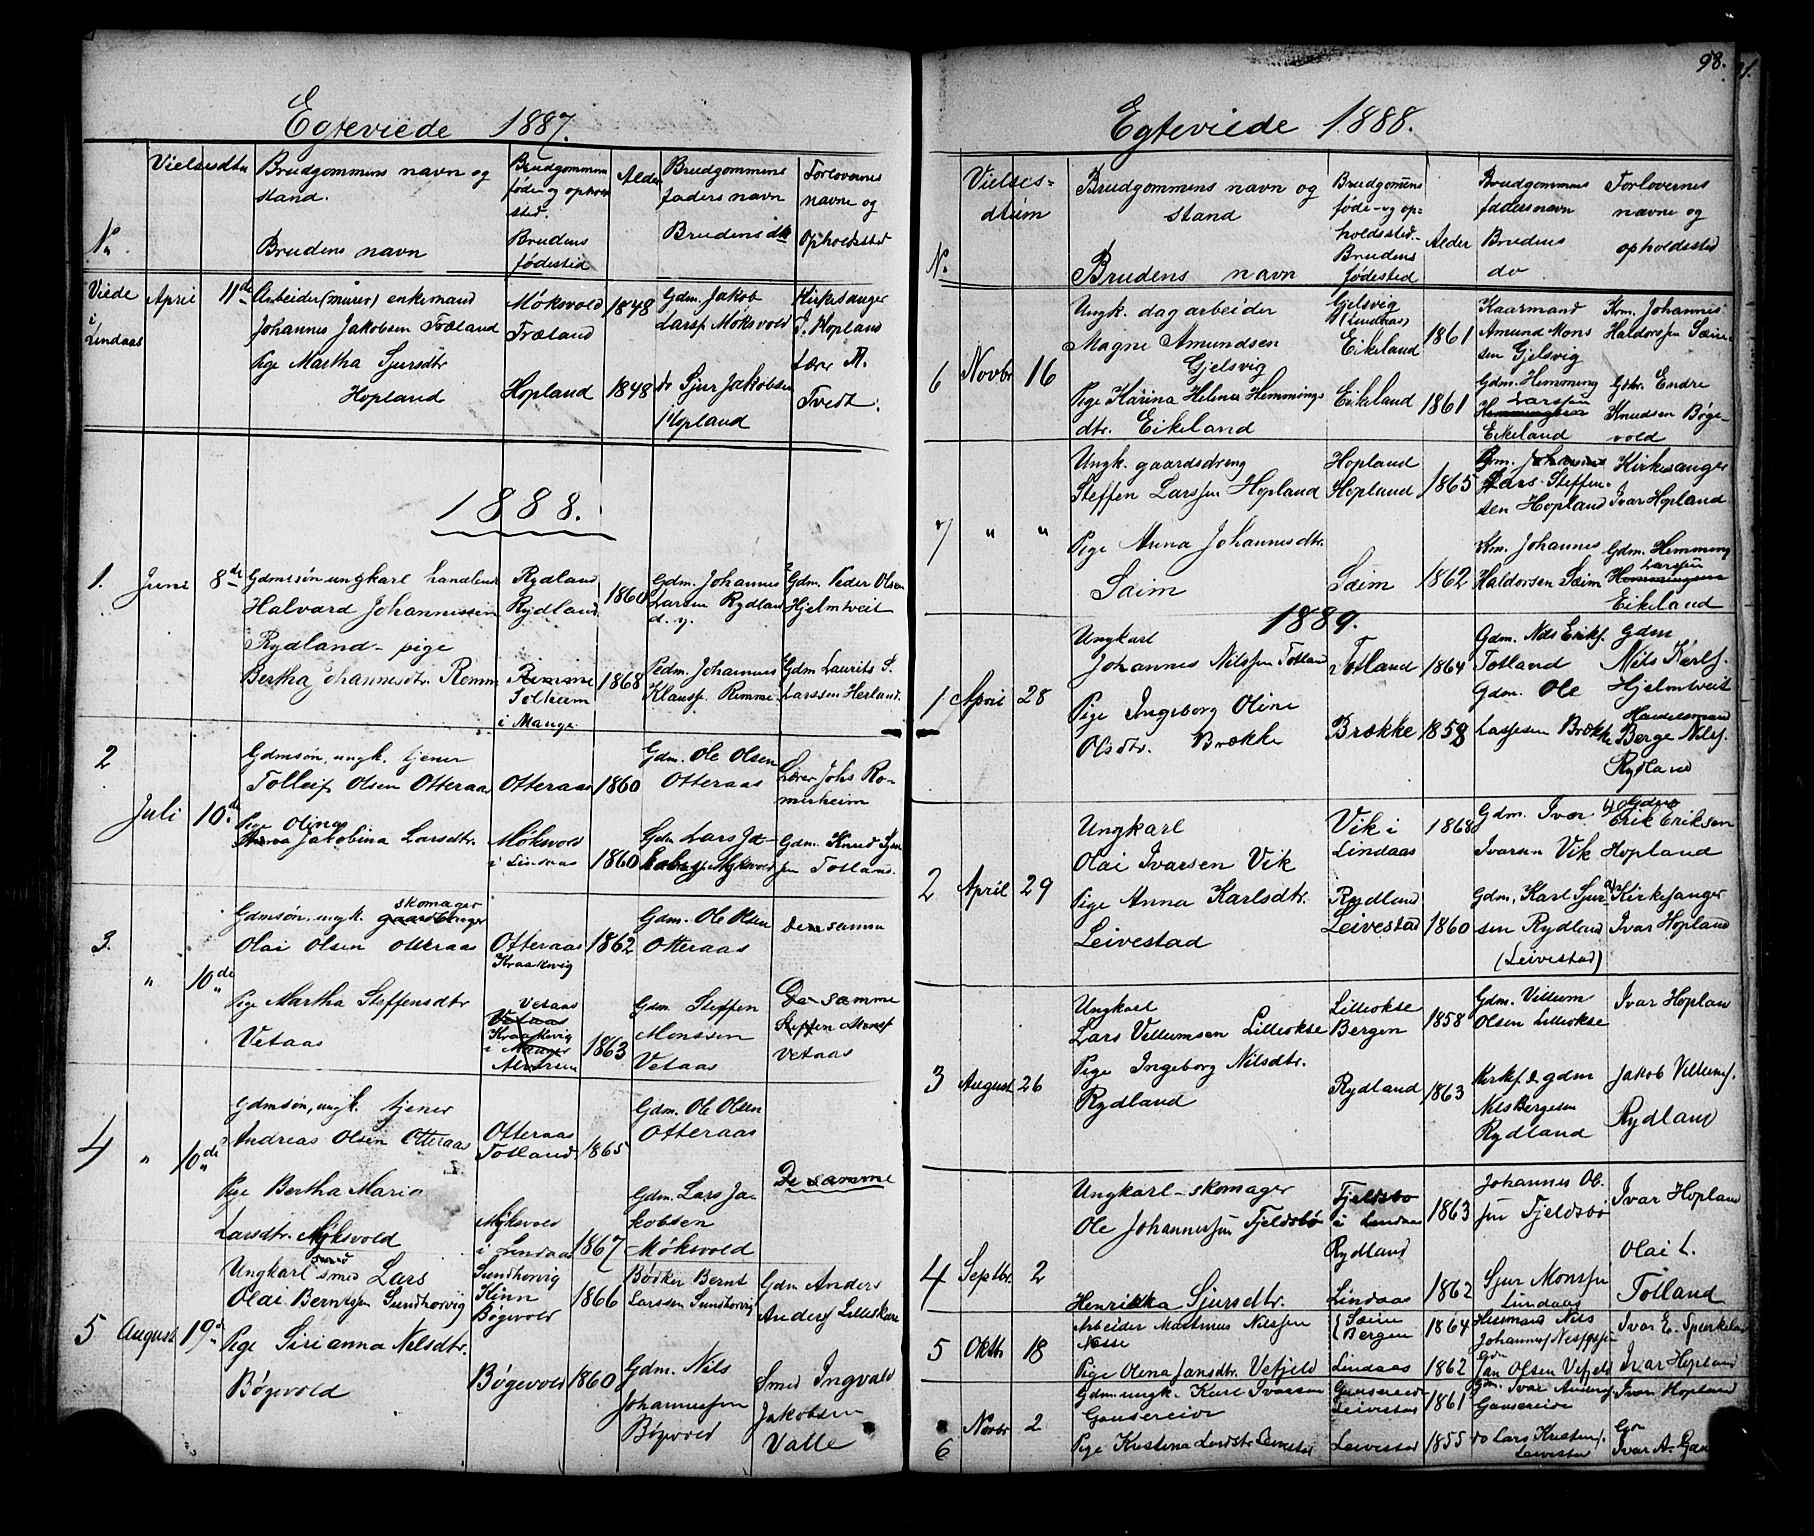 98.
Egteviede 1887.
No
Vielsesdtm
Brudgommens navn og
stand.
Brudens navn
Brudgommens
føde og ophol
sted.
Brudens
fødested
Alder
Brudgommens
faders navn
Brudens do
Forlovernes
navne og
opholdssted
Viede
i
Lindaas
April 11te
Arbeider (murer) enkemand
Johannes Jakobsen Træland
Pige Martha Sjursdtr
Hopland
Møksvold
Træland
Hopland
1848
1848
Gdm. Jakob
Larss Møksvold
do Sjur Jakobsen
Hopland
Kirkesanger
I. Hopland
Lærer A.
Tvedt.
1888.
1. Juni 8de
Gdmssøn ungkarl handlende
Halvard Johannessen
Rydland - pige
Bertha Johannesdtr. Remme
Rydland
Rydland
Remme
Solheim
i Mange
1860
1868
Gdm. Johannes
Larsen Rydland
d. y.
Pedm. Johannes
Klauss. Remme
Gdm. Peder Olsen
Hjelmtveit
Gdm Laurits S.
Larssen Herland.
2
Juli 10de
Gdmsøn, ungk. tjener
Tolleif Olsen Otteraas
Pige Olina
Jakobina Larsdtr.
Otteraas
Møksvold
i Lindaas
1860
1860
Gdm. Ole Olsen
Otteraas
Gdm Lars Ja-
kobss Myksvold
Lærer Johs Ro-
merheim
Gdm. Knud
sen Totland.
3.
" 10de
Gdmsøn, ungk. skomager
Olai Olsen Otteraas
Pige Martha Steffensdtr
Vetaas
Otteraas
Kraakevig
Vetaas
Vetaas
Kraakevig
i Manger
Alverum
1862
1863
Gdm. Ole Olsen
Otteraas
Gdm Steffen
Monssen
Vetaas
De samme
De samme
Steffen Monss
Vetaas
4 " 10de
Gdmsøn, ungk. tjener
Andreas Olsen Otteraas
Pige Bertha Maria
Larsdtr. Myksvold
Otteraas
Totland
Myksvold
i Lindaas
1865
1867
Gdm. Ole Olsen
Otteraas
Gdm. Lars Ja-
kobsen
Møksvold
De samme
5 August 19de
Ungkarl smed Lars
Olai Berntsen Sundhorvig
Pige Sirianna Nilsdtr.
Bøgevold
Sundhorvig
Kinn
Bøgevold
Bøgevold
1866
1860
Bødker Bernt
Larssen Sundhorvig
Gdm. Nils
Johannessen
Bøgevold
Gdm Anders
Anders Lilleskare
Smed Ingvald
Jakobsen
Valle
Egteviede 1888.
No.
Vielses-
dtum
Brudgommens navn og
stand
Brudens navn
Brudgomens
føde- og op-
holdssted.
Brudens
fødested
Alder
Brudgommens
faders navn
Brudens
do
Forlovernes
navne og
opholdssted
6 Novbr 16
Ungk. dagarbeider
Magne Amundsen
Gjelsvig
Pige Karina Helene Hemmings
dtr. Eikeland
Gjelsvig
(Lindaas)
Eikeland
Eikeland
1861
1861
Kaarmand
Amund Mons
sen Gjelsvig
Gdm. Hemming
Larssen
Hemmingsen
Eikeland
Krm. Johannes
Haldorssen Sæim
Gdbr. Endre
Knudsen Bøge-
vold
7 " "
Ungk. gaardsdreng
Steffen Larssen Hopland
Pige Anna Johannesdtr.
Sæim
Hopland
Hopland
Sæim
1865
1862
Gdm. Johannes
Lars Steffen-
sen Hopland
Krm. Johannes
Haldorsen Sæim
Kirkesanger
Ivar Hopland
Gdm. Hemming
Larssen
Hemmingsen
Eikeland
1889.
1 April 28
Ungkarl
Johannes Nilssen Totland
Pige Ingeborg Oline
Olsdtr. Brække
Totland
Brække
1864
1858
Gdm. Nils Eriks.
Totland
Gdm. Ole
Lassesen Brække
Gdm
Nils Karls.
Hjelmtveit
Handelsmand
Berge Nils.
Rydland
2 April 29
Ungkarl
Olai Ivarsen Vik
Pige Anna Karlsdtr.
Leivestad
Vik i
Lindaas
Rydland
Leivestad
1868
1860
Gdm. Ivar
Ivarsen Vik
Gdm, Karl Sjur-
sen Rydland
(Leivestad)
Gdm
Erik Eriksen
Hopland
Kirkesanger
Ivar Hopland
3 August 26
Ungkarl
Lars Villumsen Lilleokse
Pige Ingeborg Nilsdtr.
Rydland
Lilleokse
Bergen
Rydland
1858
1863
Gdm. Villum
Olsen Lilleokse
Kirkes. & gdm
Nils Bergesen
Rydland
Ivar Hoplan
Jakob Villums.
Rydland
4 Septbr. 2
Ungkarl - skomager
Ole Johannessen Fjeldsbø
Henrikka Sjursdtr.
Fjeldsbø
i Lindaas
Rydland
Lindaas
1863
1862
Johannes Ol
sen Fjeldsbø
Sjur Monssen
Lindaas
Ivar Hopland
Olai L.
Totland
5 Oktbr 18
Arbeider Martinus Nilssen
Næsse
Pige Olena Jansdtr. Vefjeld
Sæim
Bergen
Lindaas
1864
1862
Huusmand Nils
Johannes
Gdm
Jan Olsen Vefjeld
Ivar E. Spurkeland
Ivar Hopland
6 Novbr 2
Gdm. ungk. Karl Ivarsen
Gausereide
Pige Kristina Larsdtr. Leivestad
Gausereide
Leivestad
Leivestad
1861
1855
Gdm. Ivar Anders.
Gausereide
do Lars Kristens.
Leivestad
Ivar Hopland
Gdm
Ivar A. Gau